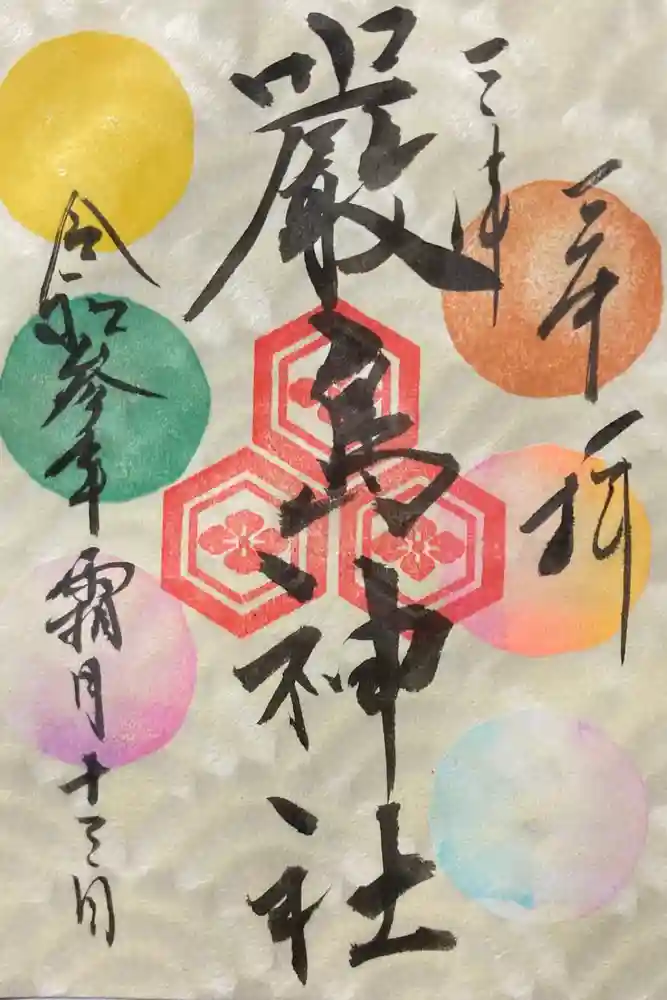 奉拝
三津
嚴島神社
令和参年霜月十三日